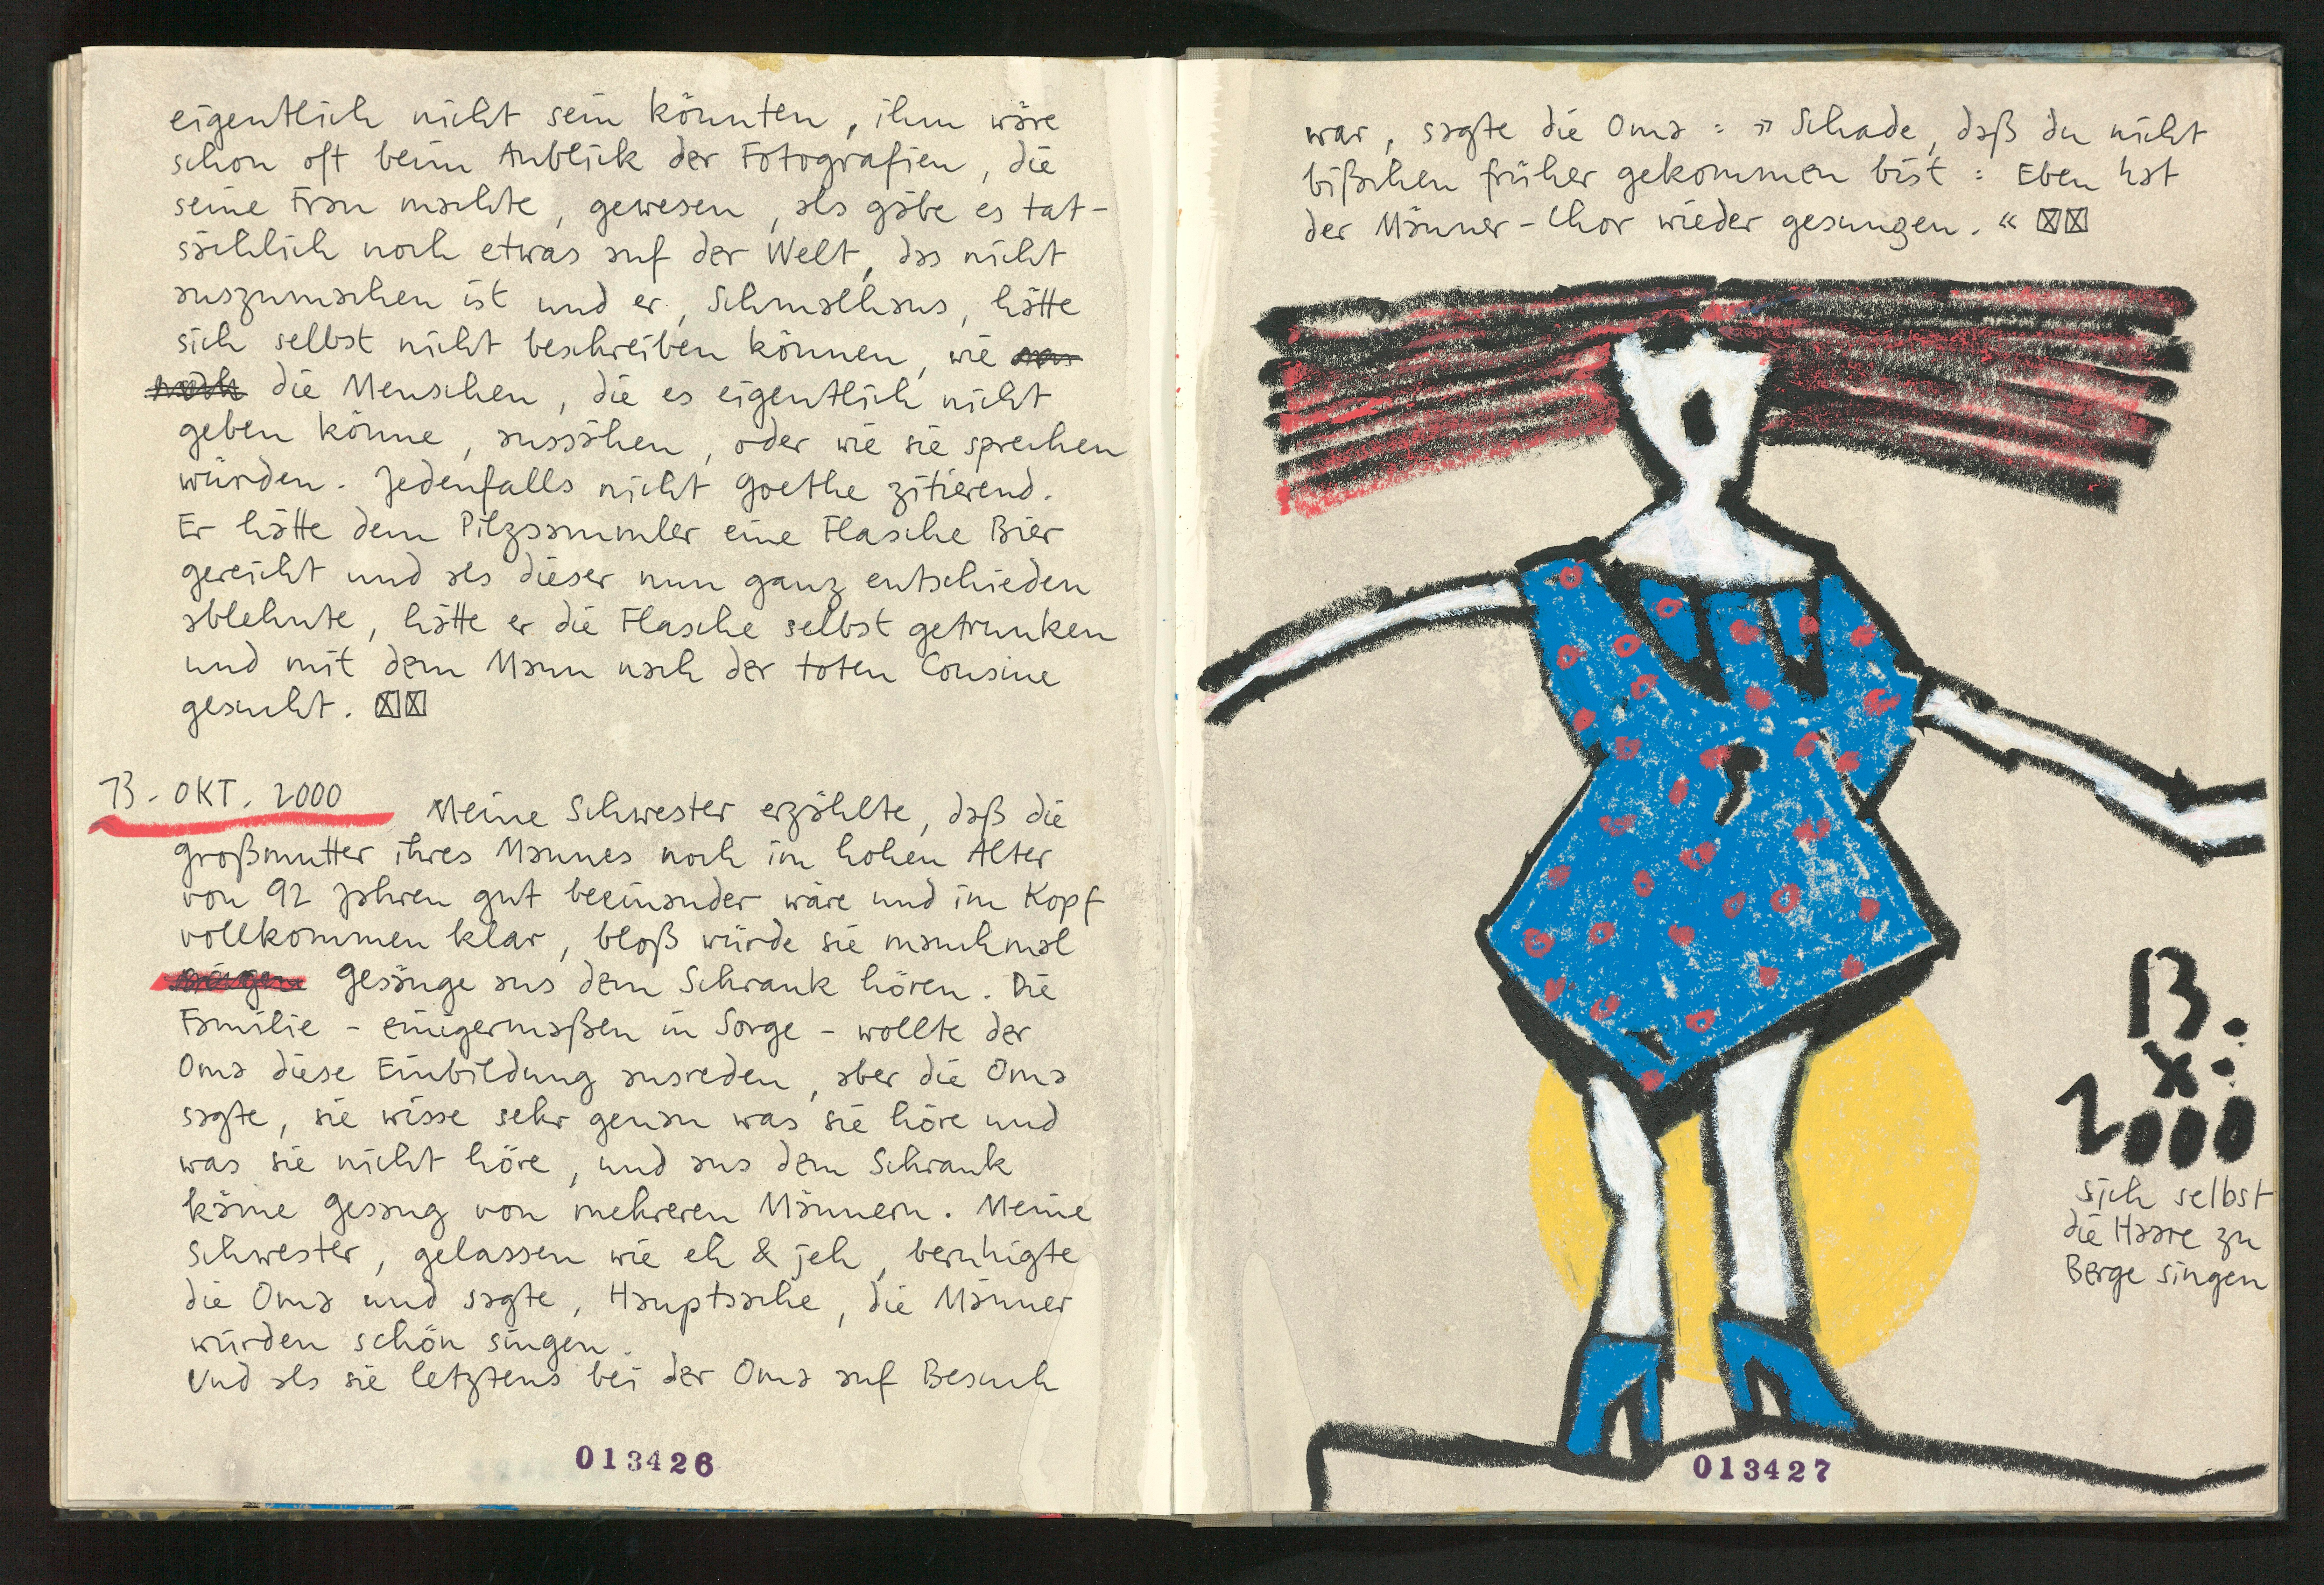 eigentlich nicht sein könnten, ihm wäre
schon oft beim Anblick der Fotografien, die
seine Frau machte, gewesen, als gäbe es tat-
sächlich noch etwas auf der Welt, das nicht
auszumachen ist und er, Schmalhans, hätte
sich selbst nicht beschreiben können, wie
die Menschen, die es eigentlich nicht
geben könne, aussähen, oder wie sie sprechen
würden. Jedenfalls nicht Goethe zitierend.
Er hätte dem Pilzsammler eine Flasche Bier
gereicht und als dieser nun ganz entschieden
ablehnte, hätte er die Flasche selbst getrunken
und mit dem Mann nach der toten Cousine
gesucht.
13. OKT. 2000 Meine Schwester erzählte, daß die
Großmutter ihres Mannes noch im hohen Alter
von 92 Jahren gut beeinander wäre und im Kopf
vollkommen klar, bloß würde sie manchmal
Gesänge aus dem Schrank hören. Die
Familie - einigermaßen in Sorge - wollte der
Oma diese Einbildung ausreden, aber die Oma
sagte, sie wisse sehr genau was sie höre und
was sie nicht höre, und aus dem Schrank
käme Gesang von mehreren Männern. Meine
Schwester, gelassen wie eh & jeh, beruhigte
die Oma und sagte, Hauptsache, die Männer
würden schön singen.
Und als sie letztens bei der Oma auf Besuch
013426
war, sagte die Oma: » Schade, daß du nicht
bißchen früher gekommen bist: Eben hat
der Männer-Chor wieder gesungen. «
13.
X.
2000
sich selbst
die Haare zu
Berge singen
013427